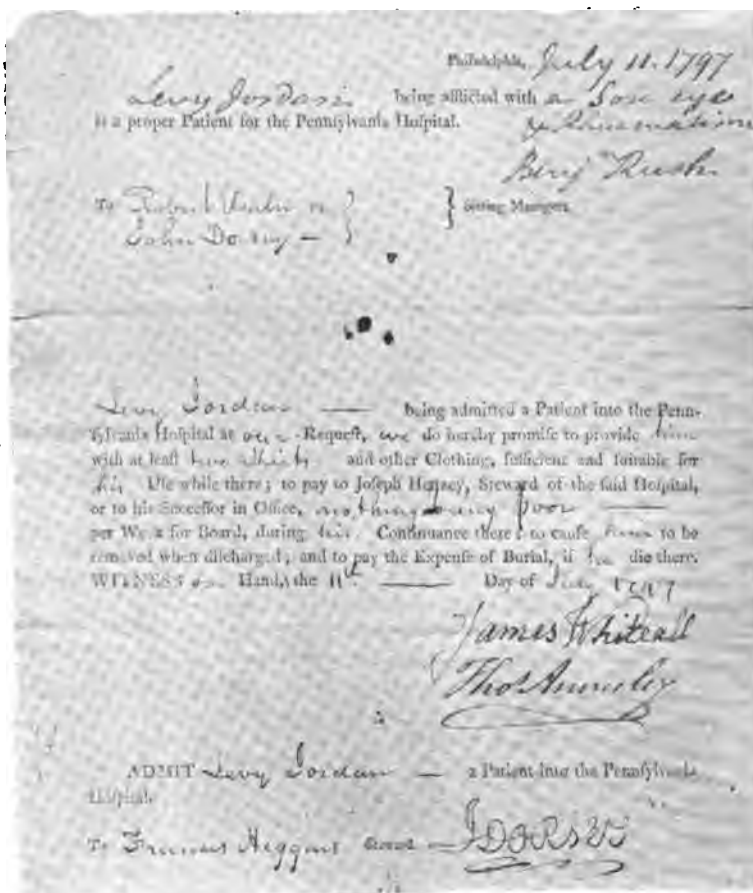 Philadelphia, July 11. 1797
Levy Jordan being afflicted with a Sore eye
is a proper Patient for the Pennſylvania Hoſpital. & Rheumatism
Benj Rush
To Robert }  } Sitting Managers
John Dorsey — }
Levy Jordan — being admitted a Patient into the Penn-
ſylvania Hoſpital at our Requeſt, we do hereby promiſe to provide him
with at leaſt two Shirts and other Clothing, ſufficient and ſuitable for
his Uſe while there; to pay to Joſeph Henzey, Steward of the ſaid Hoſpital,
or to his Succeſſor in Office, nothing being poor —
per Week for Board, during his Continuance there; to cauſe him to be
removed when diſcharged; and to pay the Expenſe of Burial, if he die there.
WITNESS our Hand, the 11th — Day of July 1797
James Whiteall
Thos Annesley
ADMIT Levy Jordan — a Patient into the Pennſylvania
Hoſpital.
To Francis Higgins — J DORSEY